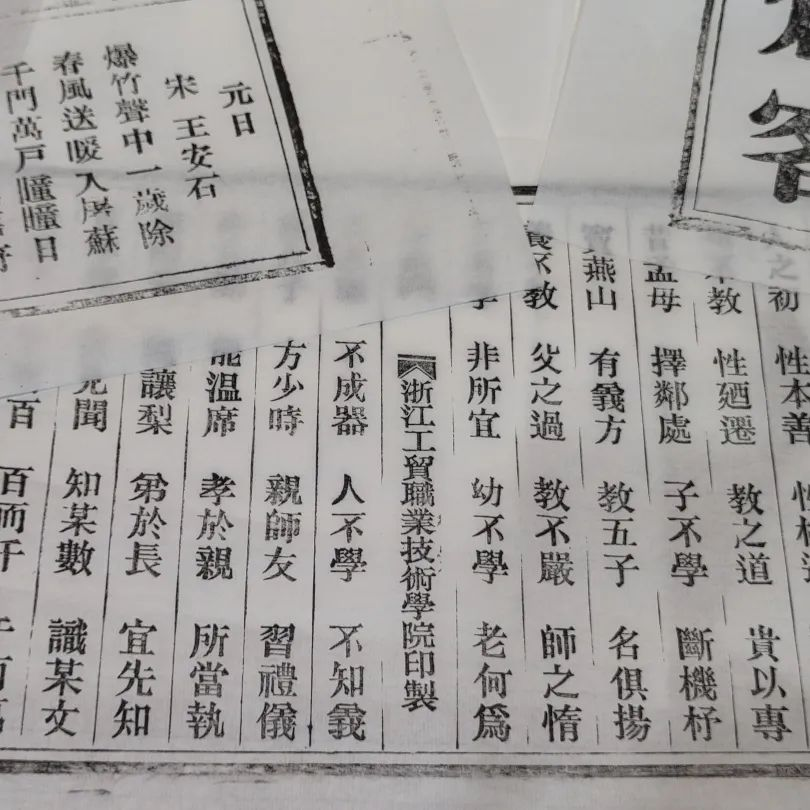 客
元日
宋 王安石
爆竹聲中一歲除
春風送暖入屠蘇
千門萬戶曈曈日
之初 性本善 性相
不教 性廼遷 教之道 貴以專
昔孟母 擇鄰處 子不學 斷機杼
竇燕山 有義方 教五子 名俱揚
養不教 父之過 教不嚴 師之惰
學 非所宜 幼不學 老何爲
浙江工貿職業技術學院印製
不成器 人不學 不知義
方少時 親師友 習禮儀
能溫席 孝於親 所當執
讓梨 弟於長 宜先知
見聞 知某數 識某文
百 百而千